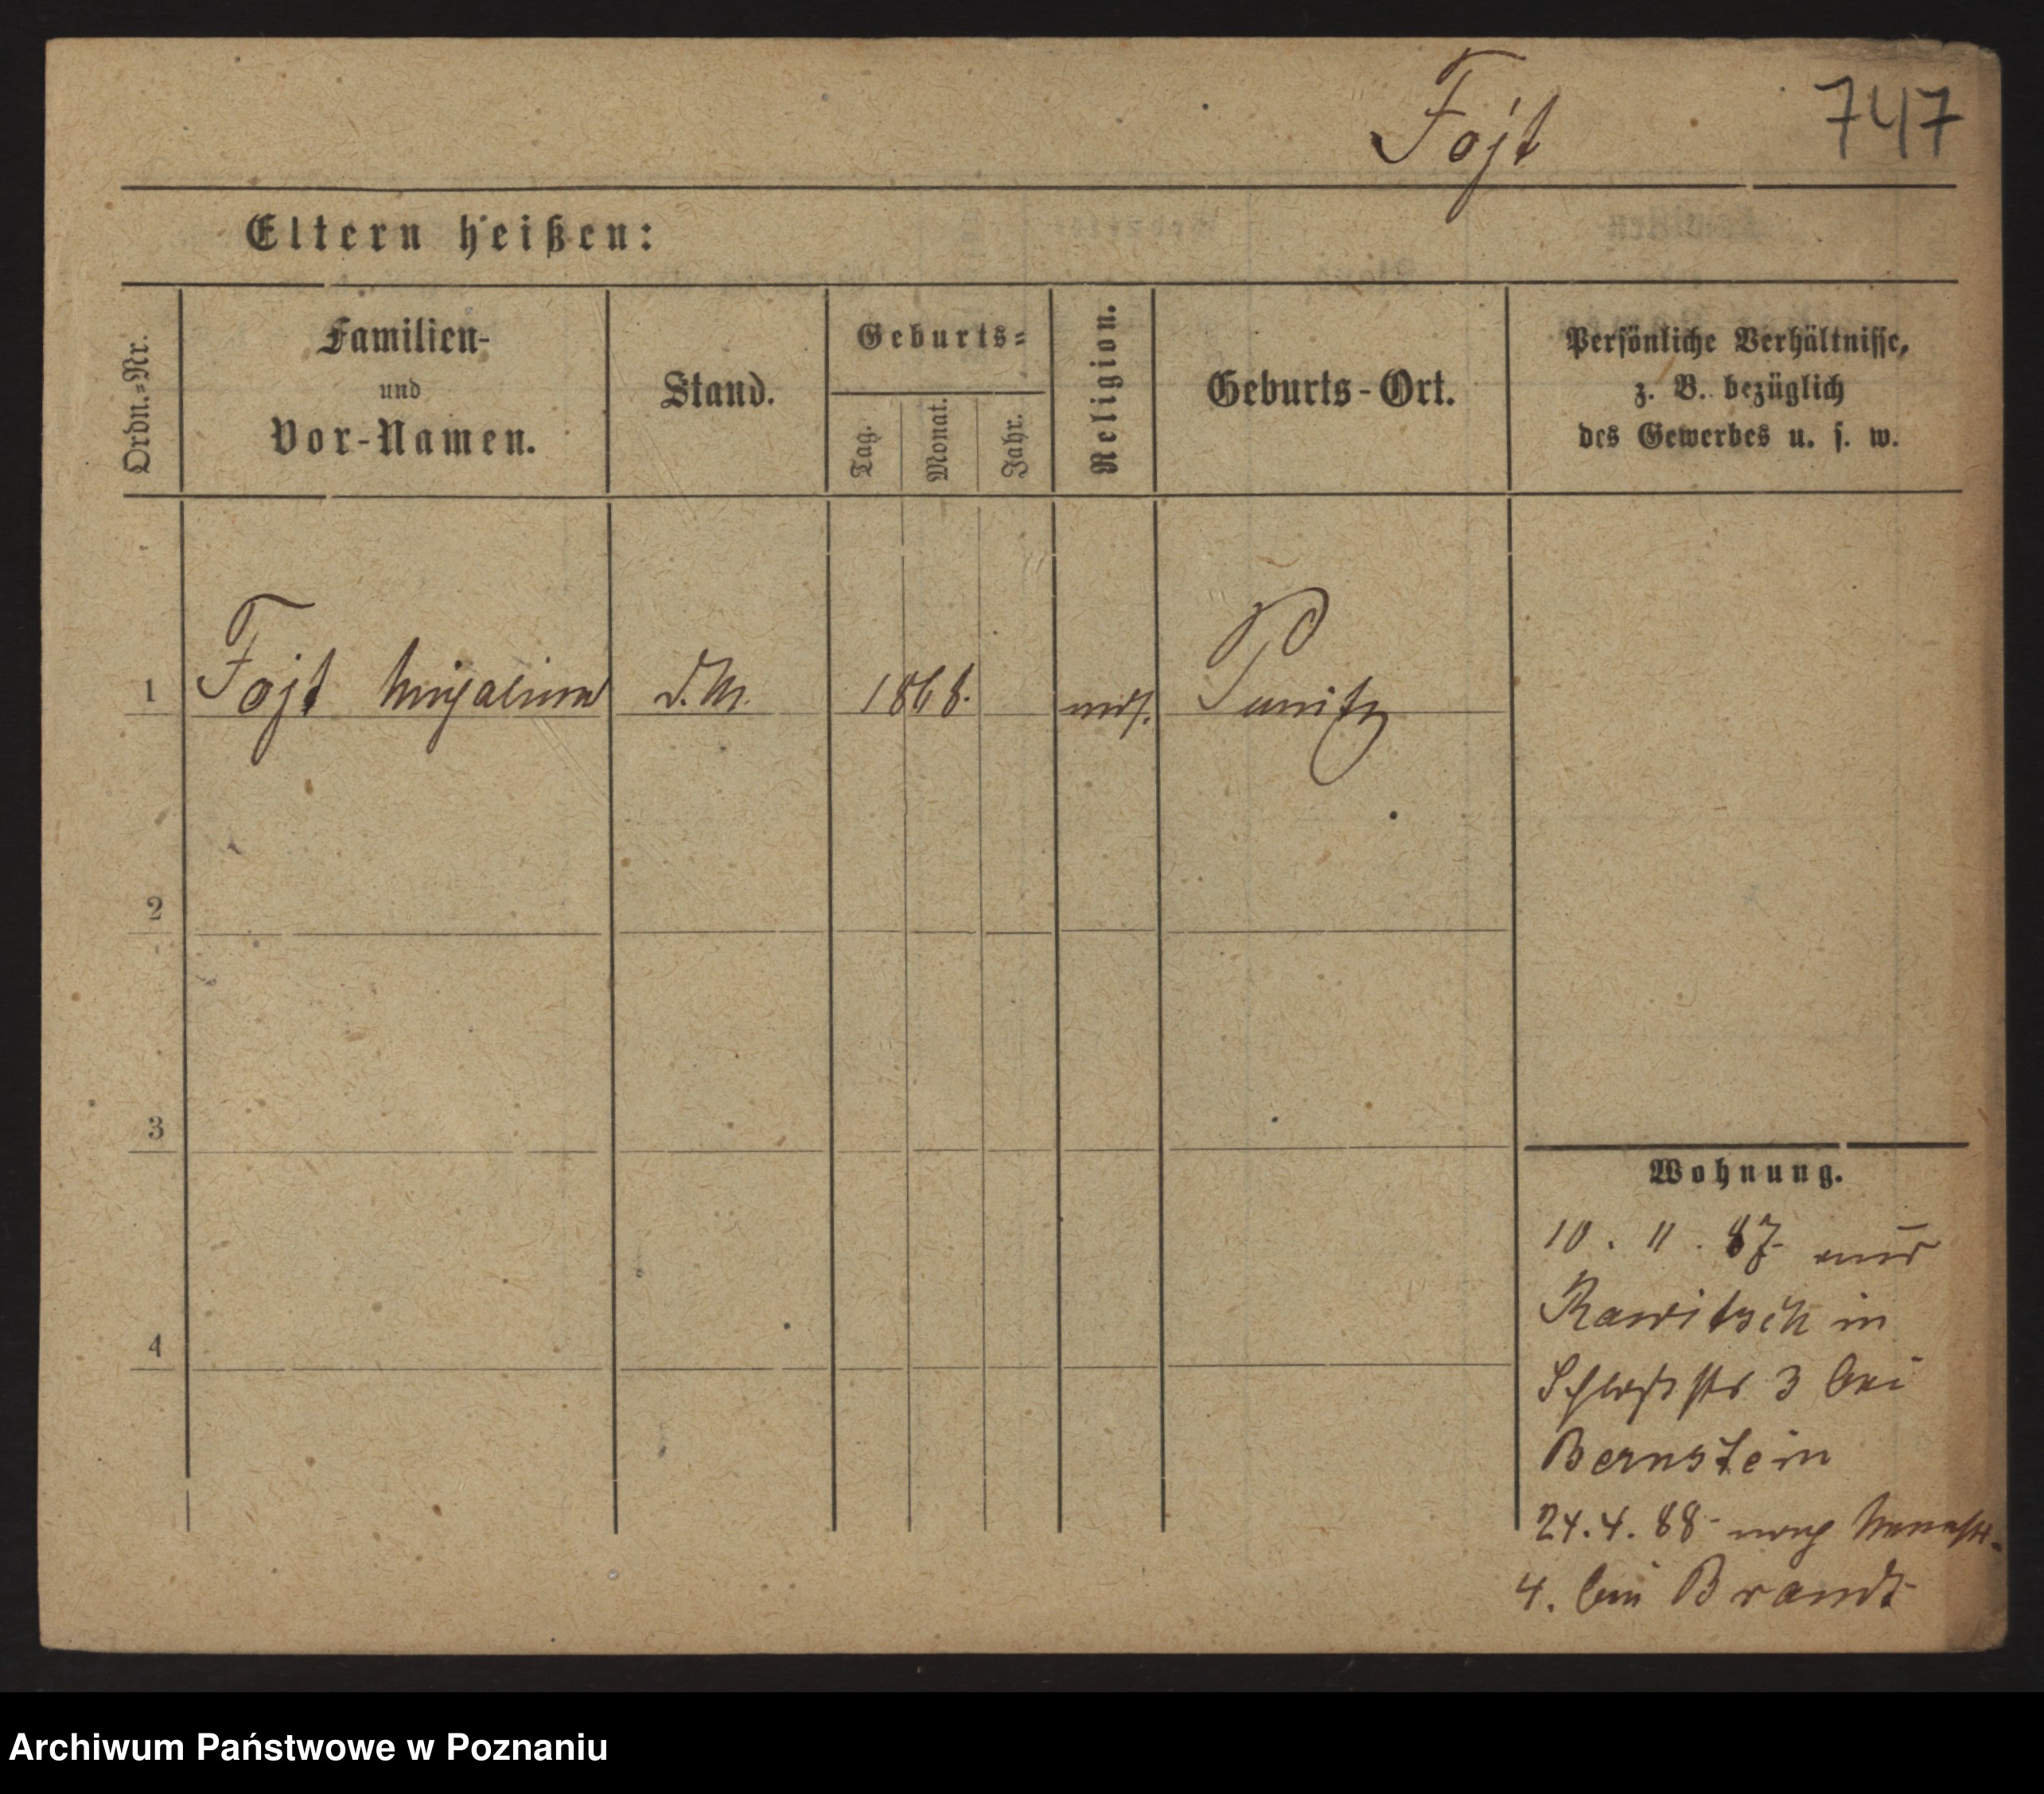 Fojt 747
Eltern heißen:
Ordn.=Nr.
Familien-
und
Vor-Namen.
Stand.
Geburts=
Tag.
Monat.
Jahr.
Religion.
Geburts-Ort.
Persönliche Verhältnisse,
z. B. bezüglich
des Gewerbes u. s. w.
1 Fojt 1868. Punitz
2
3
4
Wohnung.
10. 11. 87 aus
Rawitsch in
Schloßstr 3 bei
Bernstein
24. 4. 88 nach
4. bei Brandt
Archiwum Państwowe w Poznaniu